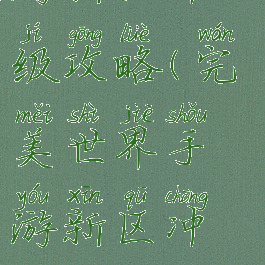 jí gōng lüè wán
级攻略(完
měi shì jiè shǒu
美世界手
yóu xīn qū chōng
游新区冲